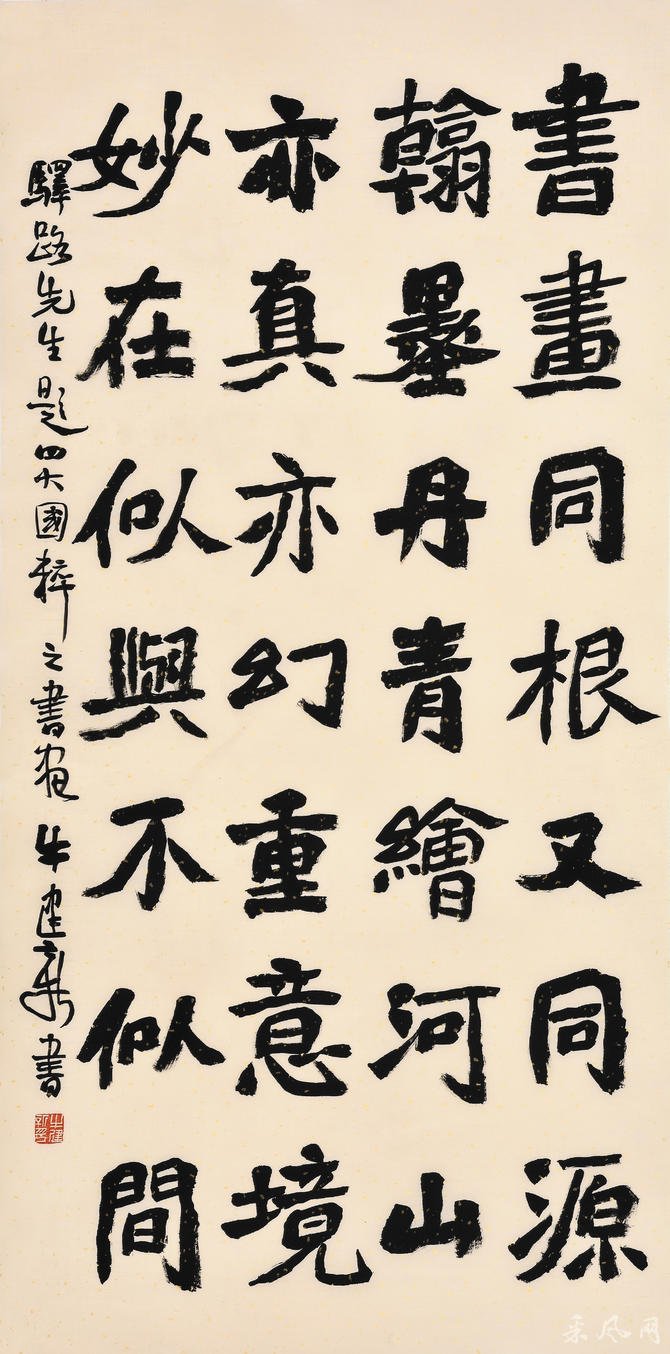 書畫同根又同源
翰墨丹青繪河山
亦真亦幻重意境
妙在似與不似間
驛路先生題四大國粹之書畫 牛建新書
采风网